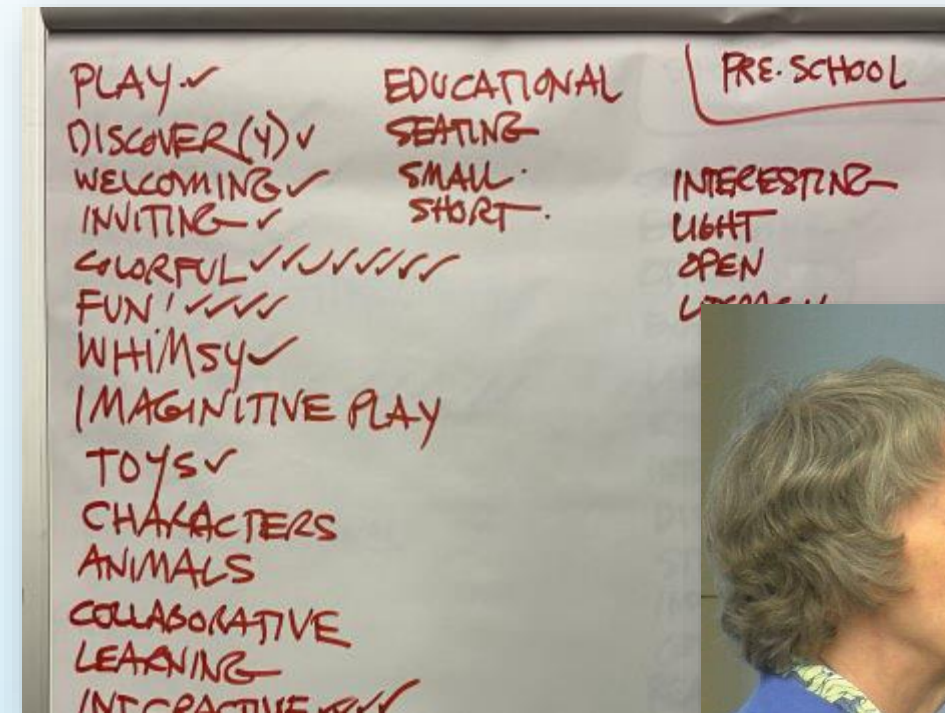 PLAY ✓
DISCOVER(Y) ✓
WELCOMING ✓
INVITING ✓
COLORFUL ✓✓✓✓✓✓✓✓
FUN! ✓✓✓✓
WHIMSY ✓
IMAGINITIVE PLAY
TOYS ✓
CHARACTERS
ANIMALS
COLLABORATIVE
LEARNING
INTERACTIVE ✓✓✓
EDUCATIONAL
SEATING
SMALL.
SHORT.
PRE-SCHOOL
INTERESTING
LIGHT
OPEN